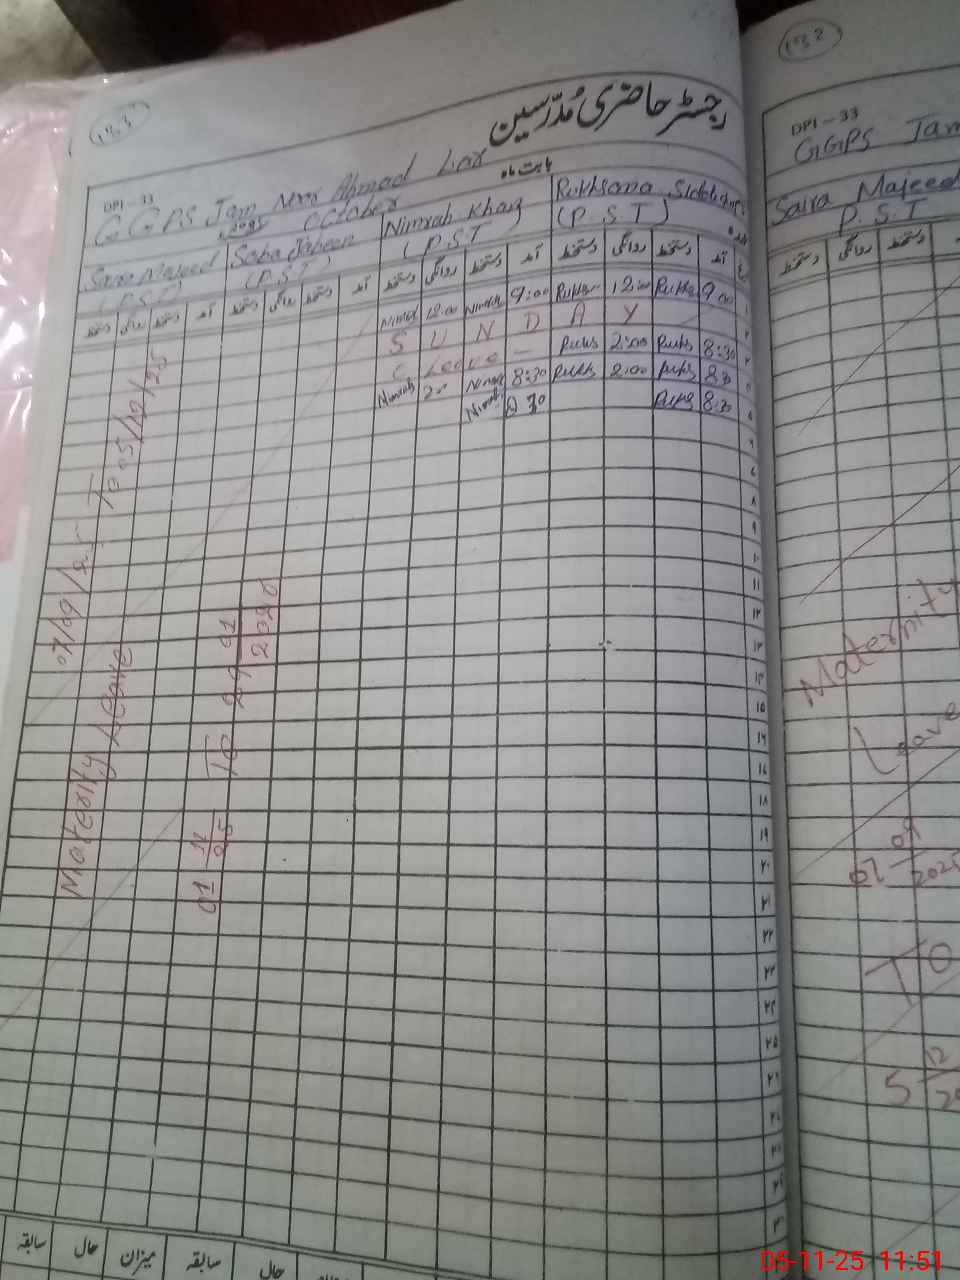 133
رجسٹر حاضری مُدرّسین
بابت ماہ
DPI-33
G G P.S Jam Ahmad Lar
October
Saira Majeed
(P.S.T)
Saba Jabeen
(P.S.T)
Nimrah Khan
(P.S.T)
Rukhsana
(P.S.T)
دستخط روانگی دستخط آمد دستخط روانگی دستخط آمد دستخط روانگی دستخط آمد دستخط روانگی دستخط آمد
Nimrah 12:00 Nimrah 9:00 Rukhs 12:00 Rukhs 9:00
S U N D A Y
C Leave - Rukhs 2:00 Rukhs 8:30
Nimrah 2:0 Nimrah 8:30 Rukhs 2:00 Rukhs 8:3
Nimrah 8:30 Rukhs 8:3
Materity Leave
07/09/25 To 05/12/25
01 11 25 To 29 01 2026
۸
۹
۱۰
۱۱
۱۲
۱۳
۱۴
۱۵
۱۶
۱۸
۱۹
۲۰
۲۱
۲۲
۲۳
۲۵
سابقہ حال میزان سابقہ حال
132
DPI-33
GGPS Jam
Saira Majeed
P.S.T
دستخط روانگی دستخط
Maternity
Leave
07 09 2025
TO
5 12
05-11-25 11:51